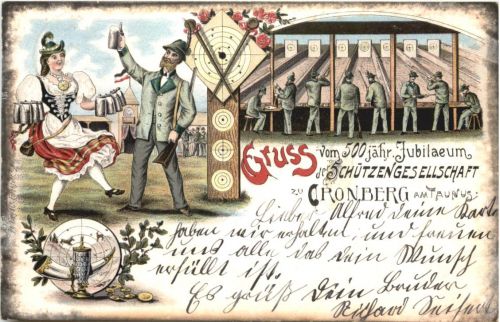 Gruss vom 500 jähr. Jubilaeum
der SCHÜTZENGESELLSCHAFT
zu CRONBERG AM TAUNUS.
Lieber Alfred deine Kart
haben wir erhalten, und freuen
uns alle das dein Wunsch
erfüllt ist.
Es grüß Dein Bruder
Richard